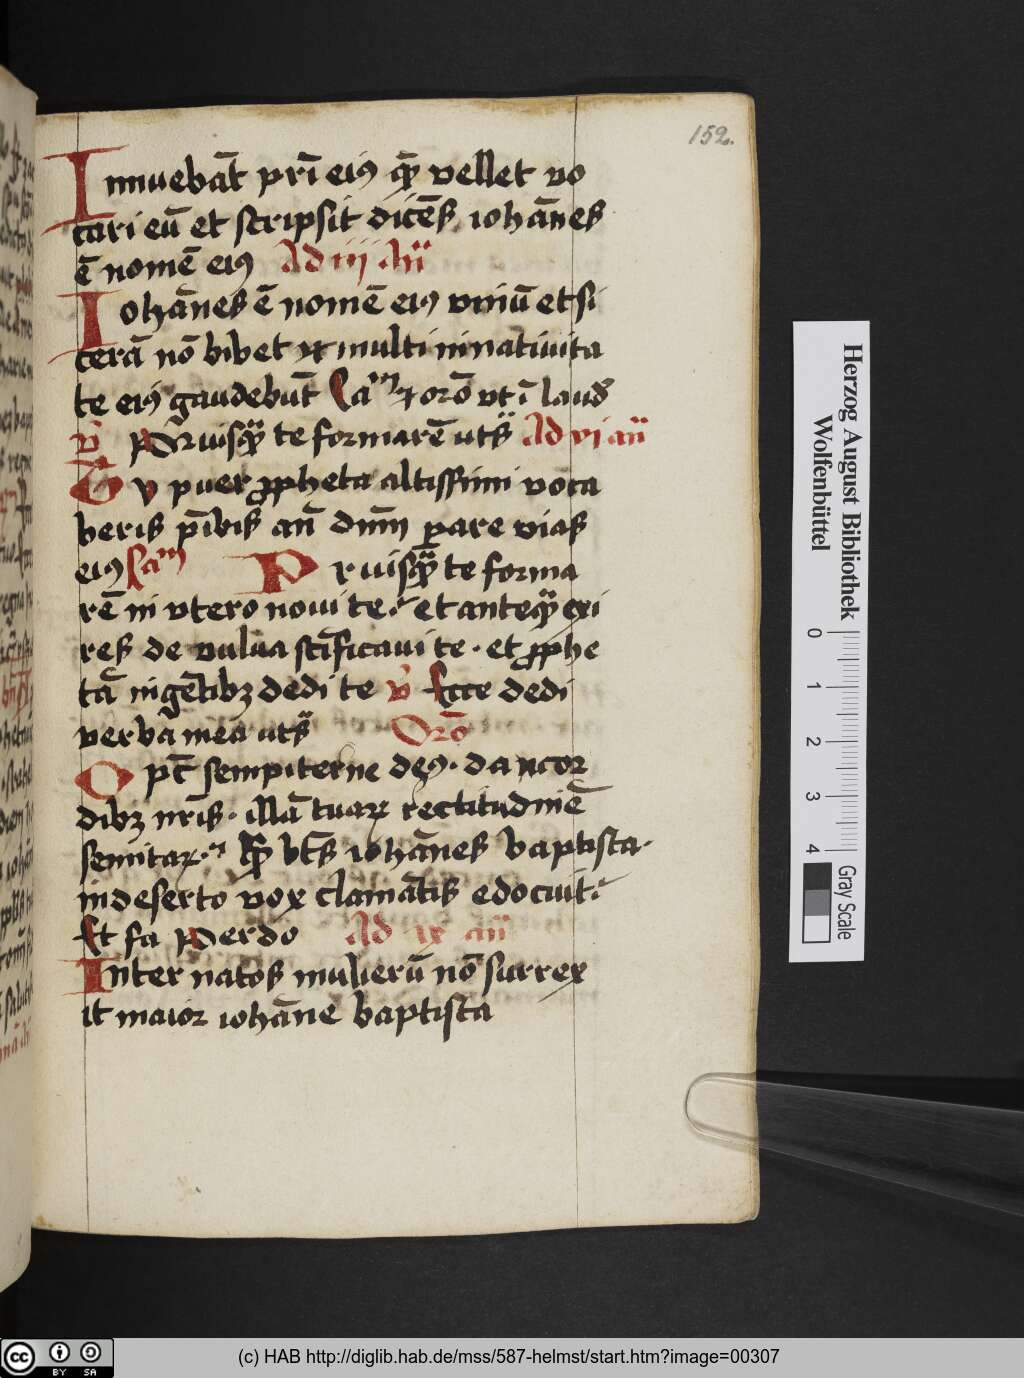 152.
Innuebāt pr̄i eiꝰ qm̄ vellet vo
cari eū et scripsit dicēs iohānes
ē nomē eiꝰ Ad iij an̄
Iohānes ē nomē eiꝰ vinū et si
cerā nō bibet et multi in natiuita
te eiꝰ gaudebūt orō vt ī laud
v̄ Priusqᷓ te formarē uts̄ Ad vi an̄
Tv puer ꝓpheta altissimi voca
beris p̄ibis an̄ dm̄ parare vias
eiꝰ Priusqᷓ te forma
rē in vtero noui te et anteqᷓ exi
res de vulua sc̄ificaui te · et ꝓphe
tā in gētibꝫ dedi te v̄ Ecce dedi
verba mea uts̄ Orō
Opc̄ sempiterne deꝰ · da n cor
dibꝫ nr̄is · illā tuaꝝ rectitudinē
semitaꝝ · bt̄s iohānes baptista ·
in deserto vox clamātis edocuit ·
Et fa Per do Ad ix an̄
Inter natos mulierū nō surrex
it maior iohāne baptista
Herzog August Bibliothek
Wolfenbüttel
0 1 2 3 4
Gray Scale
cc BY SA
(c) HAB http://diglib.hab.de/mss/587-helmst/start.htm?image=00307